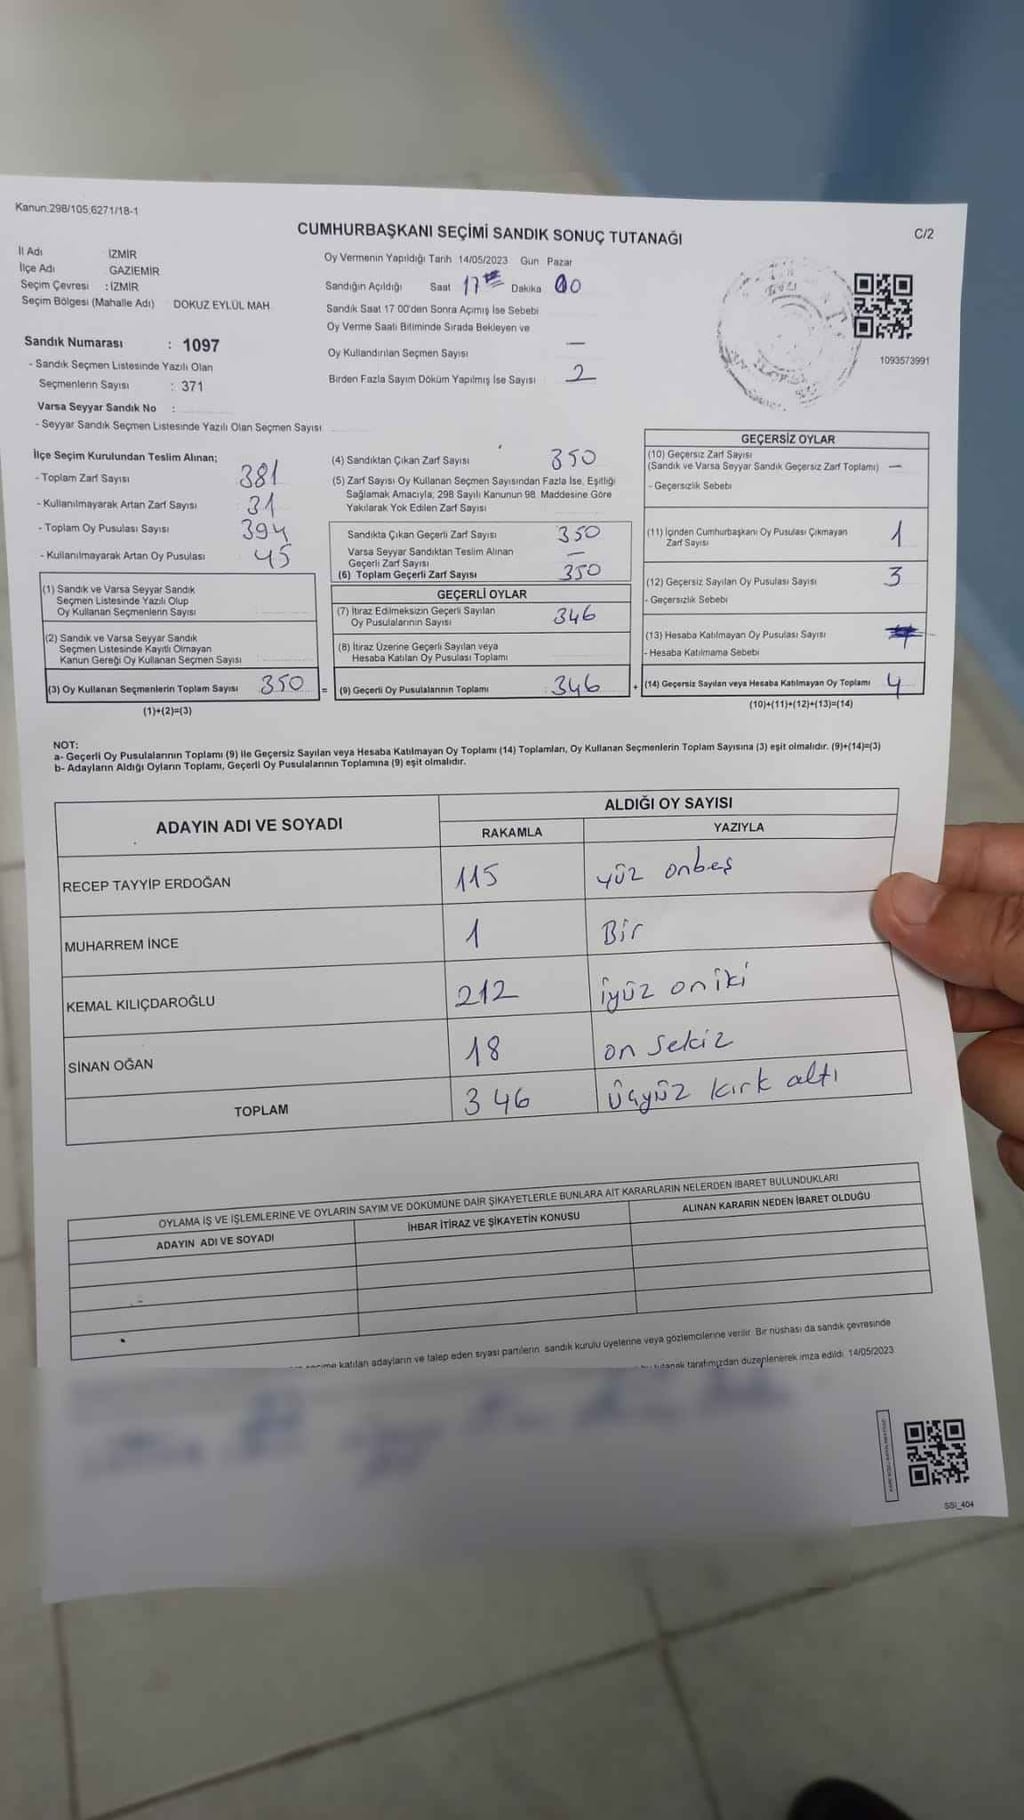 Kanun;298/105;6271/18-1
C/2
CUMHURBAŞKANI SEÇİMİ SANDIK SONUÇ TUTANAĞI
İl Adı İZMİR
İlçe Adı GAZİEMİR
Seçim Çevresi : İZMİR
Seçim Bölgesi (Mahalle Adı) DOKUZ EYLÜL MAH
Sandık Numarası : 1097
- Sandık Seçmen Listesinde Yazılı Olan
Seçmenlerin Sayısı : 371
Varsa Seyyar Sandık No :
- Seyyar Sandık Seçmen Listesinde Yazılı Olan Seçmen Sayısı
Oy Vermenin Yapıldığı Tarih 14/05/2023 Gün Pazar
Sandığın Açıldığı Saat 17 Dakika 00
Sandık Saat 17 00'den Sonra Açımış İse Sebebi
Oy Verme Saati Bitiminde Sırada Bekleyen ve
Oy Kullandırılan Seçmen Sayısı —
Birden Fazla Sayım Döküm Yapılmış İse Sayısı 2
1093573991
İlçe Seçim Kurulundan Teslim Alınan;
- Toplam Zarf Sayısı 381
- Kullanılmayarak Artan Zarf Sayısı 31
- Toplam Oy Pusulası Sayısı 394
- Kullanılmayarak Artan Oy Pusulası 45
(1) Sandık ve Varsa Seyyar Sandık
Seçmen Listesinde Yazılı Olup
Oy Kullanan Seçmenlerin Sayısı
(2) Sandık ve Varsa Seyyar Sandık
Seçmen Listesinde Kayıtlı Olmayan
Kanun Gereği Oy Kullanan Seçmen Sayısı
(3) Oy Kullanan Seçmenlerin Toplam Sayısı 350 =
(1)+(2)=(3)
(4) Sandıktan Çıkan Zarf Sayısı 350
(5) Zarf Sayısı Oy Kullanan Seçmen Sayısından Fazla İse, Eşitliği
Sağlamak Amacıyla; 298 Sayılı Kanunun 98. Maddesine Göre
Yakılarak Yok Edilen Zarf Sayısı
Sandıkta Çıkan Geçerli Zarf Sayısı 350
Varsa Seyyar Sandıktan Teslim Alınan
Geçerli Zarf Sayısı —
(6) Toplam Geçerli Zarf Sayısı 350
GEÇERLİ OYLAR
(7) İtiraz Edilmeksizin Geçerli Sayılan
Oy Pusulalarının Sayısı 346
(8) İtiraz Üzerine Geçerli Sayılan veya
Hesaba Katılan Oy Pusulası Toplamı
(9) Geçerli Oy Pusulalarının Toplamı : 346 +
GEÇERSİZ OYLAR
(10) Geçersiz Zarf Sayısı
(Sandık ve Varsa Seyyar Sandık Geçersiz Zarf Toplamı) —
- Geçersizlik Sebebi
(11) İçinden Cumhurbaşkanı Oy Pusulası Çıkmayan
Zarf Sayısı 1
(12) Geçersiz Sayılan Oy Pusulası Sayısı 3
- Geçersizlik Sebebi
(13) Hesaba Katılmayan Oy Pusulası Sayısı
- Hesaba Katılmama Sebebi
(14) Geçersiz Sayılan veya Hesaba Katılmayan Oy Toplamı 4
(10)+(11)+(12)+(13)=(14)
NOT:
a- Geçerli Oy Pusulalarının Toplamı (9) ile Geçersiz Sayılan veya Hesaba Katılmayan Oy Toplamı (14) Toplamları, Oy Kullanan Seçmenlerin Toplam Sayısına (3) eşit olmalıdır. (9)+(14)=(3)
b- Adayların Aldığı Oyların Toplamı, Geçerli Oy Pusulalarının Toplamına (9) eşit olmalıdır.
ADAYIN ADI VE SOYADI
ALDIĞI OY SAYISI
RAKAMLA YAZIYLA
RECEP TAYYİP ERDOĞAN 115 yüz onbeş
MUHARREM İNCE 1 Bir
KEMAL KILIÇDAROĞLU 212 iyüz oniki
SİNAN OĞAN 18 on sekiz
TOPLAM 346 üçyüz kırk altı
OYLAMA İŞ VE İŞLEMLERİNE VE OYLARIN SAYIM VE DÖKÜMÜNE DAİR ŞİKAYETLERLE BUNLARA AİT KARARLARIN NELERDEN İBARET BULUNDUKLARI
ADAYIN ADI VE SOYADI İHBAR İTİRAZ VE ŞİKAYETİN KONUSU ALINAN KARARIN NEDEN İBARET OLDUĞU
katılan adayların ve talep eden siyasi partilerin sandık kurulu üyelerine veya gözlemcilerine verilir. Bir nüshası da sandık çevresinde
tutanak tarafımızdan düzenlenerek imza edildi. 14/05/2023
SSI_404